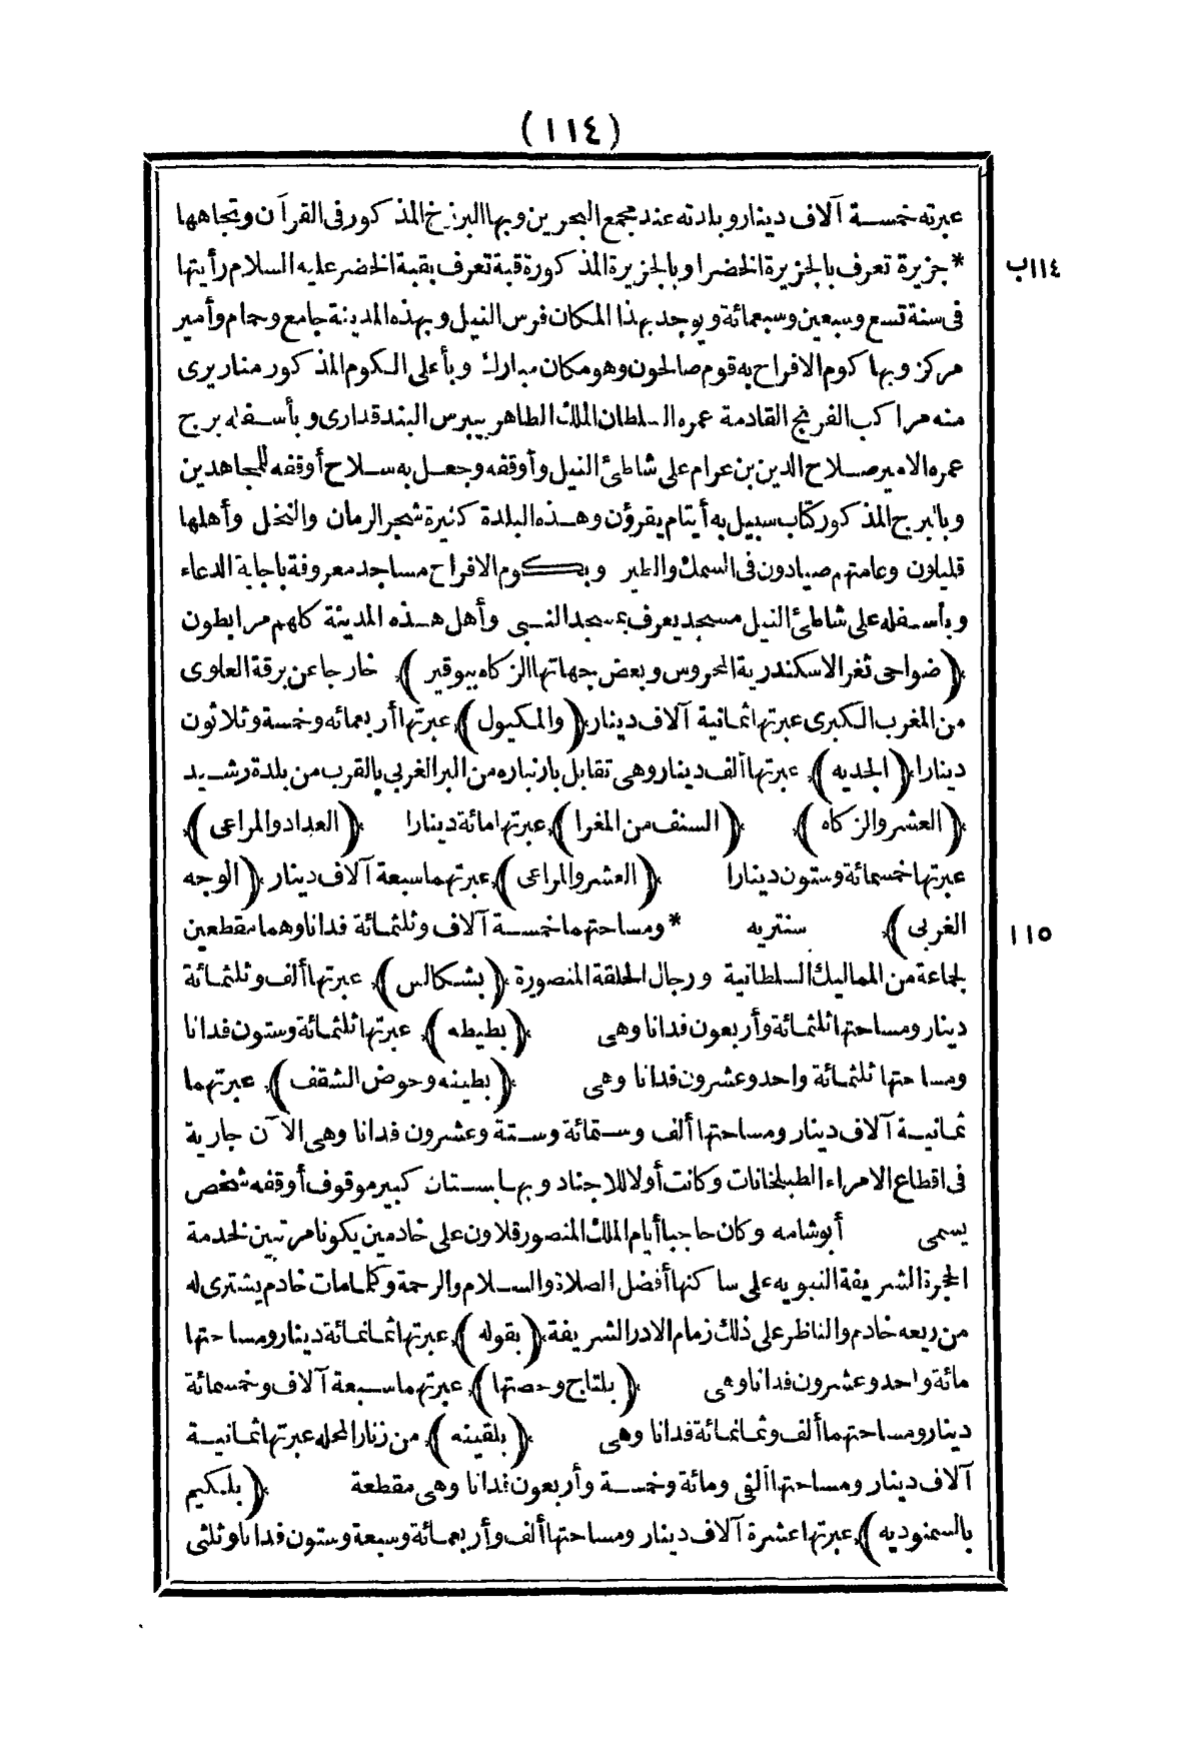 (١١٤)
عبرته خمسة آلاف دينار وبلدته عند مجمع البحرين وبها البرزخ المذكور فى القرآن وتجاهها
١١٤ب
* جزيرة تعرف بالجزيرة الخضرا وبالجزيرة المذكورة قبة تعرف بقبة الخضر عليه السلام رأيتها
فى سنة تسع وسبعين وسبعمائة ويوجد بهذا المكان فرس النيل وبهذه المدينة جامع وحمام وأمير
مركز وبها كوم الافراح به قوم صالحون وهو مكان مبارك وبأعلى الكوم المذكور منار يرى
منه مراكب الفرنج القادمة عمره السلطان الملك الظاهر بيبرس البندقدارى وبأسفله برج
عمره الامير صلاح الدين بن عرام على شاطئ النيل وأوقفه وجعل به سلاح أوقفه للمجاهدين
وبالبرج المذكور كتاب سبيل به أيتام يقرؤن وهذه البلدة كثيرة شجر الرمان والنخل وأهلها
قليلون وعامتهم صيادون فى السمك والطير وبكوم الافراح مساجد معروفة باجابة الدعاء
وبأسفله على شاطئ النيل مسجد يعرف بمسجد النبى وأهل هذه المدينة كلهم مرابطون
﴿ضواحى ثغر الاسكندرية المحروس وبعض جهاتها الزكاه ببوقير﴾ خارجا عن برقة العلوى
من المغرب الكبرى عبرتها ثمانية آلاف دينار ﴿والمكيول﴾ عبرتها أربعمائه وخمسة وثلاثون
دينارا ﴿الجديه﴾ عبرتها ألف دينار وهى تقابل بارنباره من البر الغربى بالقرب من بلدة رشيد
﴿العشر والزكاه﴾ ﴿السنف من المغرا﴾ عبرتها مائة دينارا ﴿العداد والمراعى﴾
عبرتها خمسمائة وستون دينارا ﴿العشر والمراعى﴾ عبرتهما سبعة آلاف دينار ﴿الوجه
الغربى﴾ سنتريه * ومساحتهما خمسة آلاف وثلثمائة فدانا وهما مقطعين
١١٥
لجماعة من المماليك السلطانية ورجال الحلقة المنصورة ﴿بشكالس﴾ عبرتها ألف وثلثمائة
دينار ومساحتها ثلثمائة وأربعون فدانا وهى ﴿بطيطه﴾ عبرتها ثلثمائة وستون فدانا
ومساحتها ثلثمائة واحد وعشرون فدانا وهى ﴿بطينه وحوض الشقف﴾ عبرتهما
ثمانية آلاف دينار ومساحتها ألف وستمائة وستة وعشرون فدانا وهى الآن جارية
فى اقطاع الامراء الطبلخانات وكانت أولا للاجناد وبها بستان كبير موقوف أوقفه شخص
يسمى أبو شامه وكان حاجبا أيام الملك المنصور قلاون على خادمين يكونا مرتبين لخدمة
الحجرة الشريفة النبويه على ساكنها أفضل الصلاة والسلام والرحمة وكلما مات خادم يشترى له
من ريعه خادم والناظر على ذلك زمام الادر الشريفة ﴿بقوله﴾ عبرتها ثمانمائة دينار ومساحتها
مائة واحد وعشرون فدانا وهى ﴿بلتاج وحصتها﴾ عبرتهما سبعة آلاف وخمسمائة
دينار ومساحتهما ألف وثمانمائة فدانا وهى ﴿بلقينه﴾ من زنار المحله عبرتها ثمانية
آلاف دينار ومساحتها ألفى ومائة وخمسة وأربعون فدانا وهى مقطعة ﴿بلكيم
بالسمنوديه﴾ عبرتها عشرة آلاف دينار ومساحتها ألف وأربعمائة وسبعة وستون فدانا وثلثى